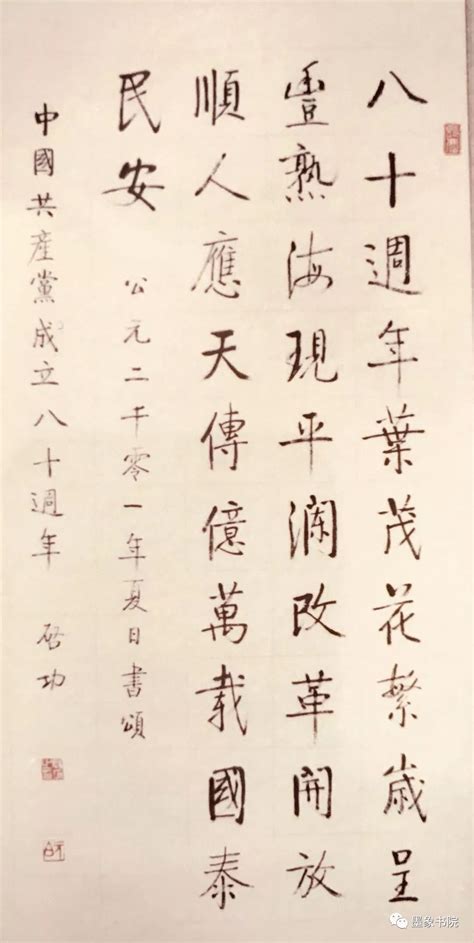 八十週年葉茂花繁歲呈
豐熟海現平瀾改革開放
順人應天傳億萬載國泰
民安
公元二千零一年夏日書頌
中國共產黨成立八十週年 啟功
墨象书院